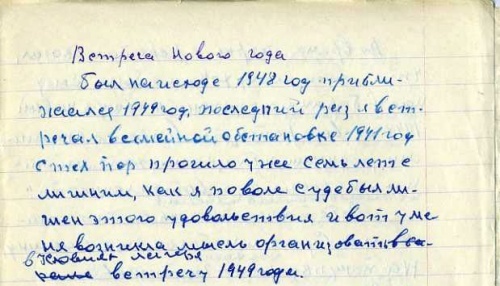 Встреча Нового года
Был на исходе 1948 год прибли-
жался 1949 год, последний раз я вст-
речал в семейной обстановке 1941 год
с тех пор прошло уже семь лет с
лишним, как я по воле судьбы ли-
шен этого удовольствия и вот у ме
ня возникла мысль организовать
в условиях лагеря
встречу 1949 года.